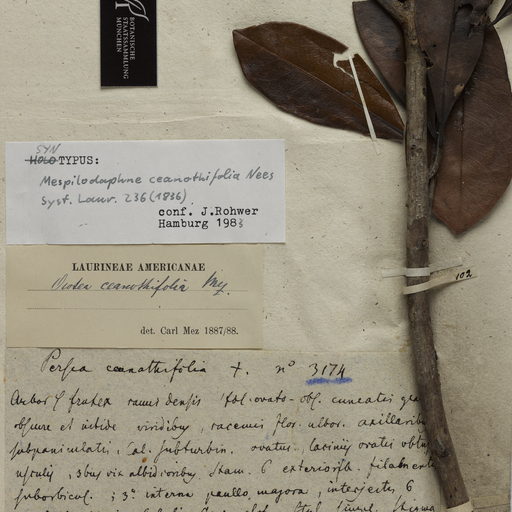 BOTANISCHE
STAATSSAMMLUNG
MÜNCHEN
SYN
HOLOTYPUS:
Mespilodaphne ceanothifolia Nees
Syst. Laur. 236 (1836)
conf. J.Rohwer
Hamburg 1983
LAURINEAE AMERICANAE
Ocotea ceanothifolia Mez.
det. Carl Mez 1887/88.
102
Persea ceanothifolia †. nº 3174
Arbor frutex ramis densis fol. ovato-obl. cuneatis
obscure et nitide viridibus, racemis flor. albor. axillaribus
subpaniculatis, Cal. subturbin. ovatus, laciniis ovatis
3bus vix albidioribus. Stam. 6 exteriorib. filamentis
suborbicul. ; 3ª interna paullo majora, interjectis 6